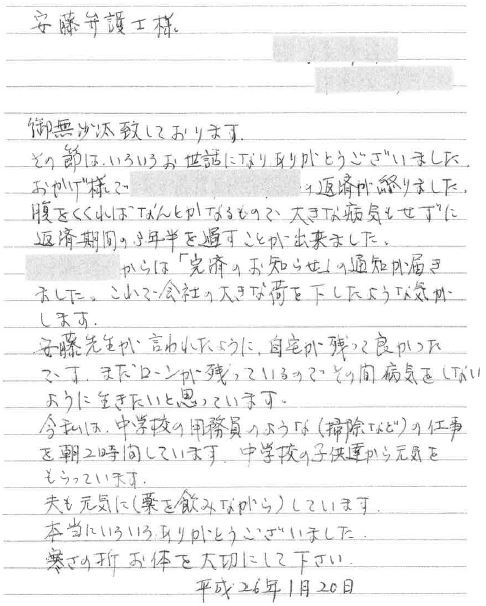 安藤弁護士様
御無沙汰致しております。
その節は、いろいろお世話になりありがとうございました。
おかげ様で の返済が終りました。
腹をくくればなんとかなるもので、大きな病気もせずに
返済期間の3年半を過すことが出来ました。
からは「完済のお知らせ」の通知が届き
ました。これで会社の大きな荷を下したような気が
します。
安藤先生が言われたように、自宅が残って良かった
です。まだローンが残っているのでその間病気をしない
ように生きたいと思っています。
今私は、中学校の用務員のような(掃除など)の仕事
を朝2時間しています。中学校の子供達から元気を
もらっています。
夫も元気に(薬を飲みながら)しています。
本当にいろいろありがとうございました。
寒さの折お体を大切にして下さい。
平成26年1月20日